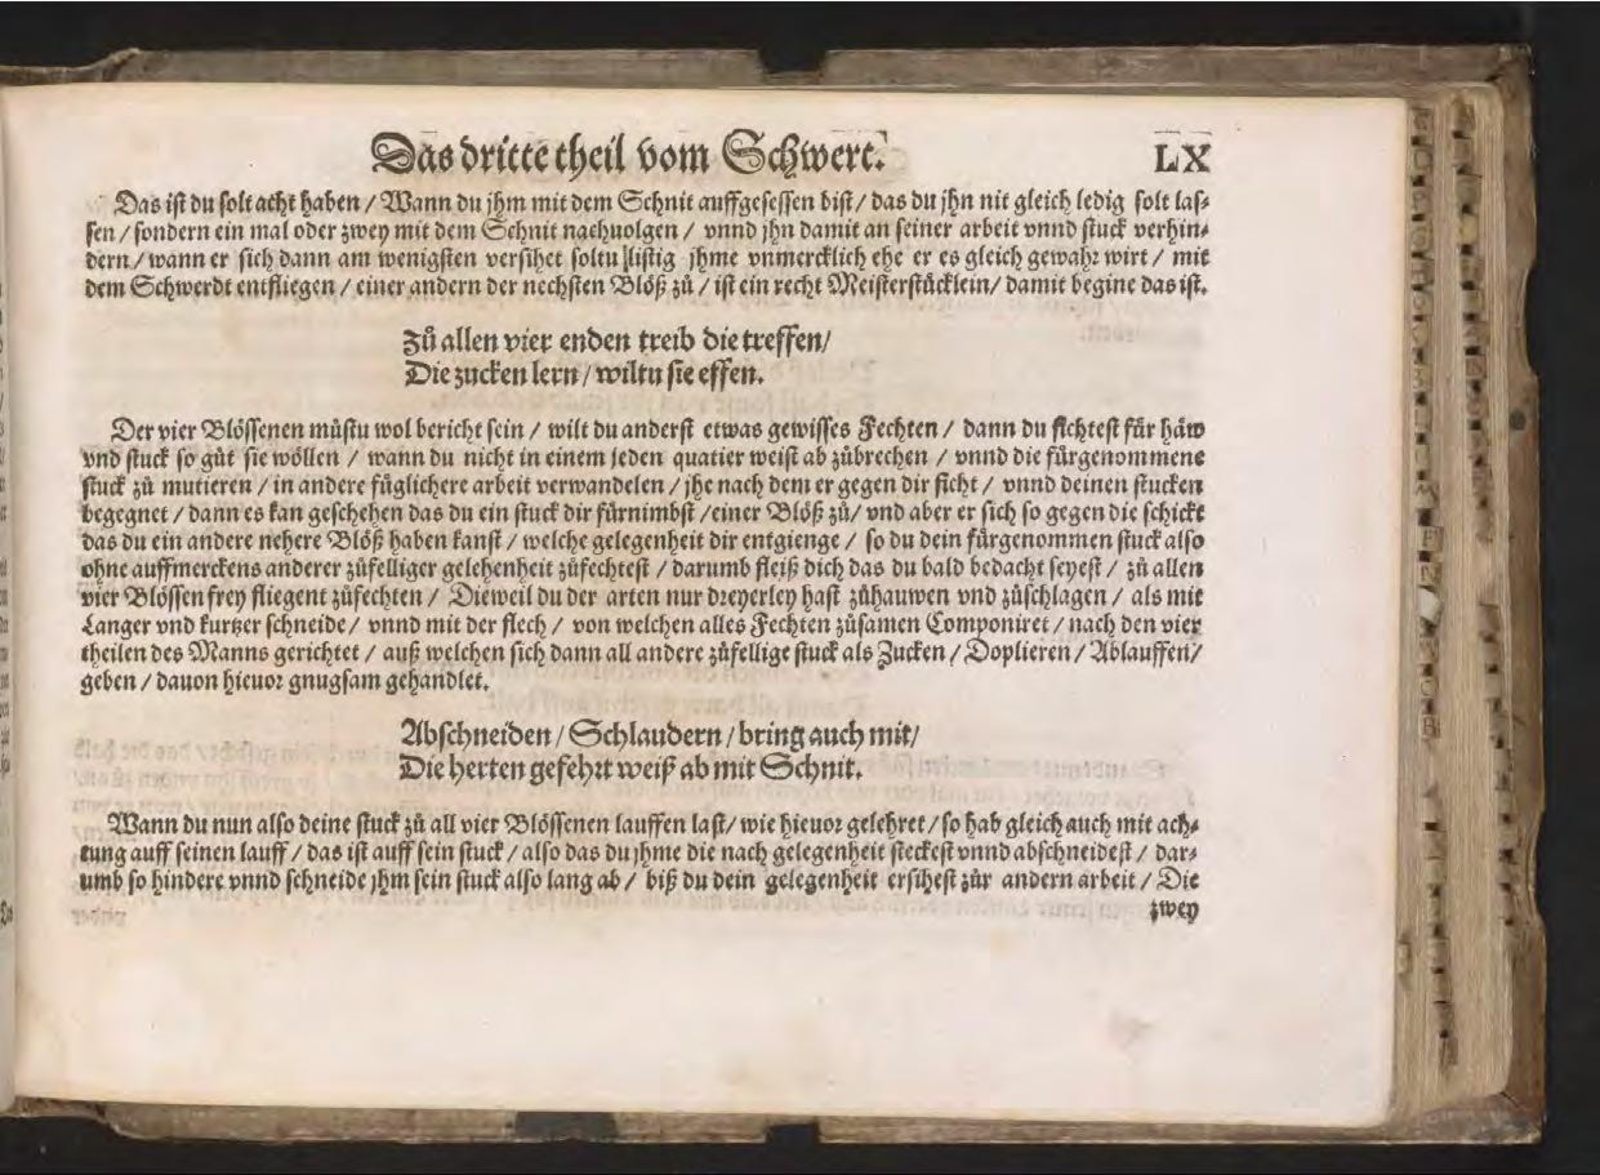 Das dritte theil vom Schwert. LX
Das ist du solt acht haben / Wann du jhm mit dem Schnit auffgesessen bist / das du jhn nit gleich ledig solt las-
sen / sondern ein mal oder zwey mit dem Schnit nachuolgen / vnnd jhn damit an seiner arbeit vnnd stuck verhin-
dern / wann er sich dann am wenigsten versihet soltu listig jhme vnmercklich ehe er es gleich gewahr wirt / mit
dem Schwerdt entfliegen / einer andern der nechsten Blöß zů / ist ein recht Meisterstücklein / damit begine das ist.
Zů allen vier enden treib die treffen /
Die zucken lern / wiltu sie effen.
Der vier Blössenen můstu wol bericht sein / wilt du anderst etwas gewisses Fechten / dann du fichtest für häw
vnd stuck so gůt sie wöllen / wann du nicht in einem jeden quatier weist ab zůbrechen / vnnd die fürgenommene
stuck zů mutieren / in andere füglichere arbeit verwandelen / jhe nach dem er gegen dir ficht / vnnd deinen stucken
begegnet / dann es kan geschehen das du ein stuck dir fürnimbst / einer Blöß zů / vnd aber er sich so gegen die schickt
das du ein andere nehere Blöß haben kanst / welche gelegenheit dir entgienge / so du dein fürgenommen stuck also
ohne auffmerckens anderer zůfelliger gelehenheit zůfechtest / darumb fleiß dich das du bald bedacht seyest / zů allen
vier Blössen frey fliegent zůfechten / Dieweil du der arten nur dreyerley hast zůhauwen vnd zůschlagen / als mit
Langer vnd kurtzer schneide / vnnd mit der flech / von welchen alles Fechten zůsamen Componiret / nach den vier
theilen des Manns gerichtet / auß welchen sich dann all andere zůfellige stuck als Zucken / Doplieren / Ablauffen /
geben / dauon hieuor gnugsam gehandlet.
Abschneiden / Schlaudern / bring auch mit /
Die herten gefehrt weiß ab mit Schnit.
Wann du nun also deine stuck zů all vier Blössenen lauffen last / wie hieuor gelehret / so hab gleich auch mit ach-
tung auff seinen lauff / das ist auff sein stuck / also das du jhme die nach gelegenheit steckest vnnd abschneidest / dar-
umb so hindere vnnd schneide jhm sein stuck also lang ab / biß du dein gelegenheit ersihest zůr andern arbeit / Die
zwey